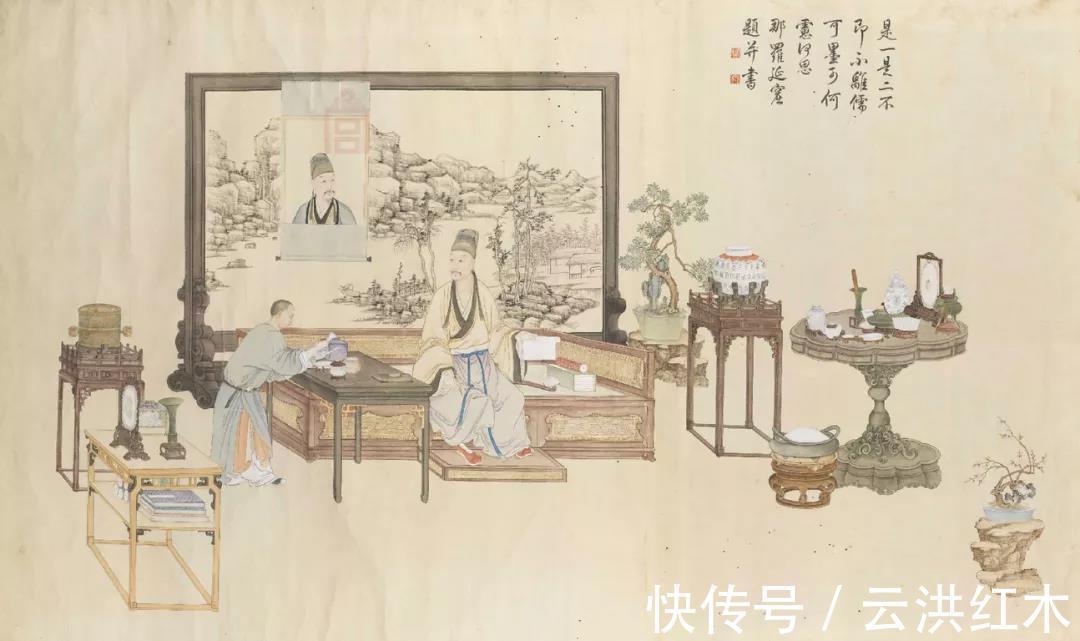 是一是二不
即不離儒
可墨可何
慮何思
那羅延窟
題并書
快传号 / 云洪红木